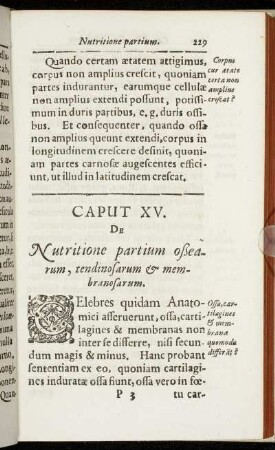 Nutritione partium. 229
Quando certam ætatem attigimus,
corpus non amplius crescit, quoniam
partes indurantur, earumque cellulæ
non amplius extendi possunt, potissi-
mum in duris partibus, e, g, duris ossi-
bus. Et consequenter, quando ossa
non amplius queunt extendi, corpus in
longitudinem crescere desinit, quoni-
am partes carnosæ augescentes effici-
unt, ut illud in latitudinem crescat.
Corpus
cur ætate
certa non
amplius
crescat?
CAPUT XV.
DE
Nutritione partium osseà-
rum, tendinosarum & mem-
branosarum.
CElebres quidam Anato-
mici asseruerunt, ossa, carti-
lagines & membranas non
inter se differre, nisi secun-
dum magis & minus. Hanc probant
sententiam ex eo, quoniam cartilagi-
nes induratæ ossa sunt, ossa vero in fœ-
Ossa, car-
tilagines
& mem-
branæ
quomodo
differāt?
P 3 tu car-